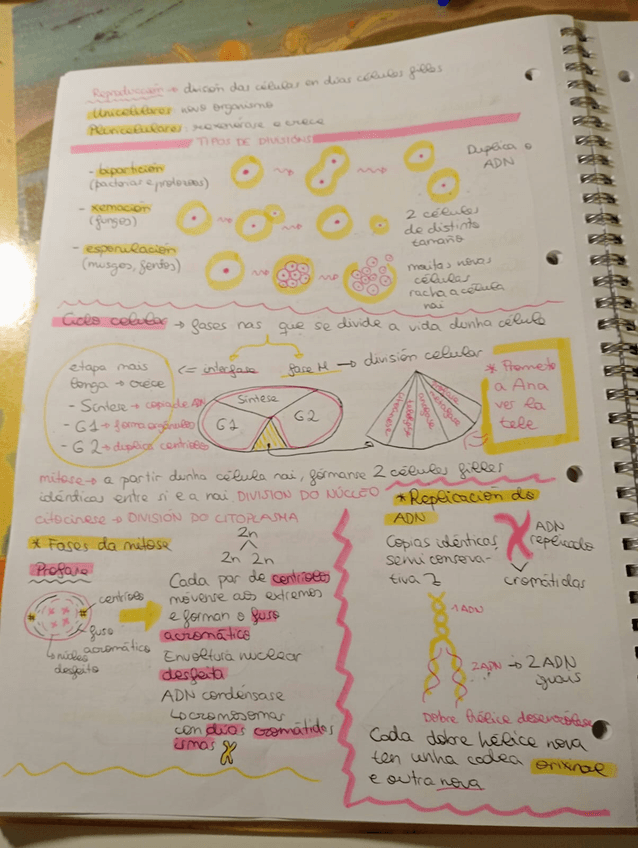 Reproducción → división das células en dúas células fillas
Unicelulares: novo organismo
Pluricelulares: rexenérase e crece
TIPOS DE DIVISIÓNS
- bipartición
(bacterias e protozoos)
Duplica o
ADN
- xemación
(fungos)
2 células
de distinto
tamaño
- esporulación
(musgos, fentos)
moitas novas
células
racha a célula
nai
Ciclo celular → fases nas que se divide a vida dunha célula
etapa máis
longa → crece
- Síntese → copia de ADN
- G1 → forma orgánulos
- G2 → duplica centriolos
<= interfase
fase M → división celular
Síntese
G1
G2
profase
metafase
anafase
telofase
citocinese
* Prometo
a Ana
ver la
tele
mitose → a partir dunha célula nai, fórmanse 2 células fillas
idénticas entre si e a nai DIVISIÓN DO NÚCLEO
citocinese → DIVISIÓN DO CITOPLASMA
* Fases da mitose
Profase
centriolos
fuso
acromático
núcleo
desfeito
2n
2n 2n
Cada par de centriolos
móvense aos extremos
e forman o fuso
acromático
Envoltura nuclear
desfeita
ADN condénsase
↳ cromosomas
con dúas cromátidas
irmás
* Replicación do
ADN
Copias idénticas,
semiconserva-
tiva
ADN
replicado
cromátidas
1 ADN
2 ADN → 2 ADN
iguais
Dobre hélice desenrólase
Cada dobre hélice nova
ten unha cadea orixinal
e outra nova